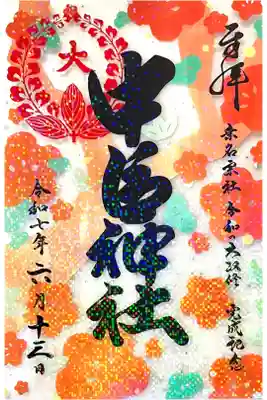 奉拝
桑名宗社 令和の大改修 完成記念
中臣神社
大
令和七年六月十三日